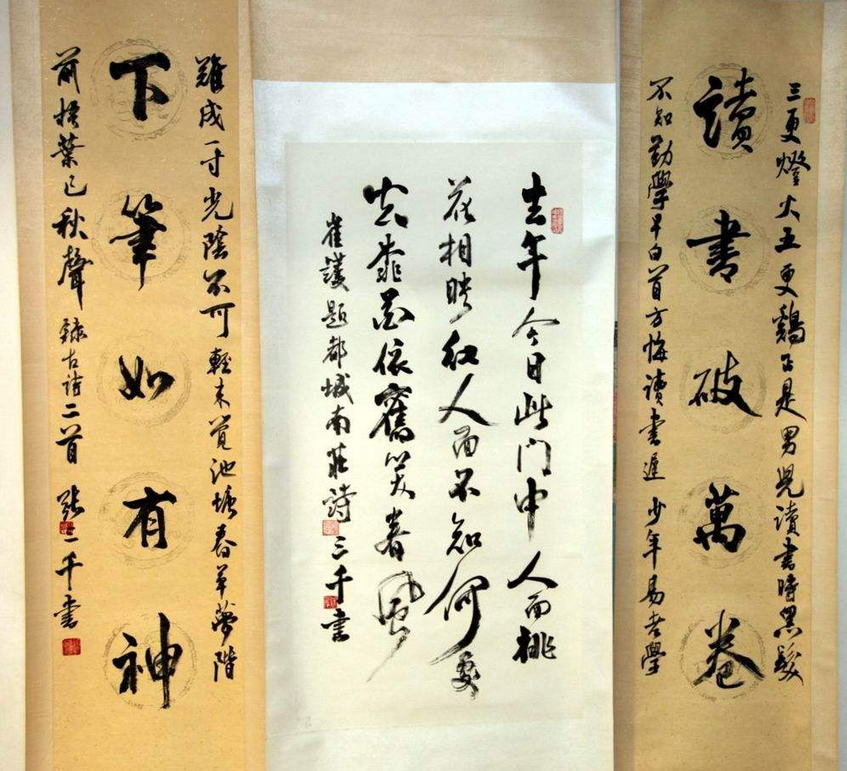 三更燈火五更鷄正是男兒讀書時黑髮
讀書破萬卷
不知勤學早白首方悔讀書遲 少年易老學
去年今日此门中 人面桃
花相映红人面不知何處
去桃花依舊笑春風
崔護題都城南莊詩 三千書
難成一寸光陰不可輕未覺池塘春草夢階
下筆如有神
前梧葉已秋聲 錄古詩二首 張三千書